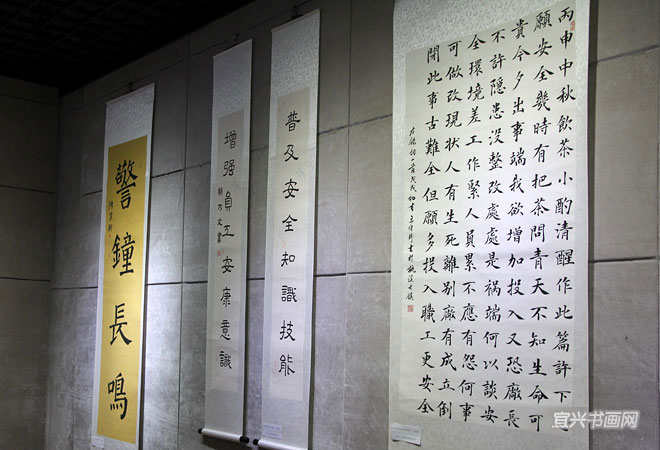 丙申中秋飲茶小酌清醒作此篇許下
願安全幾時有把茶問青天不知生命可
貴今夕出事端我欲增加投入又恐廠長
不許隱患没整改處處是祸端何以談安
全環境差工作緊人員累不應有怨何事
可做改現狀人有生死離别廠有成立倒
閉此事古難全但願多投入職工更安全
普及安全知識技能
增强員工安康意識
警鐘長鳴
宜兴书画网